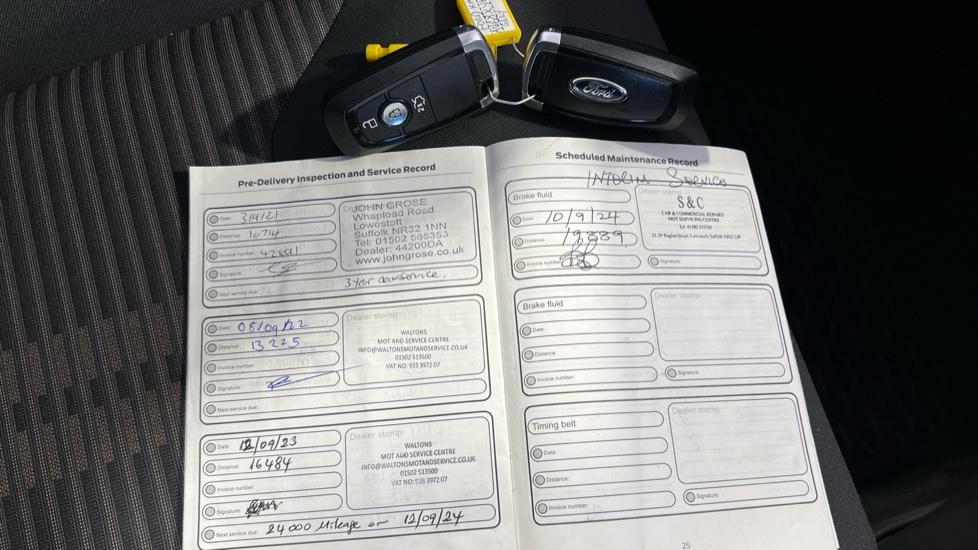 Ford
Pre-Delivery Inspection and Service Record
Date:
Distance: 10714
Invoice number:
Signature:
Next service due:
3 Year
JOHN GROSE
Whapload Road
Lowestoft
Suffolk NR32 1NN
Tel: 01502 565353
Dealer: 44200DA
www.johngrose.co.uk
Date: 08/09/22
Distance: 13225
Invoice number:
Signature:
Next service due:
Dealer stamp:
WALTONS
MOT AND SERVICE CENTRE
INFO@WALTONSMOTANDSERVICE.CO.UK
01502 513500
VAT NO: 933 3972 07
Date: 12/09/23
Distance: 16484
Invoice number:
Signature:
Next service due: 24000 Mileage or 12/09/24
Dealer stamp:
WALTONS
MOT AND SERVICE CENTRE
INFO@WALTONSMOTANDSERVICE.CO.UK
01502 513500
VAT NO: 933 3972 07
Scheduled Maintenance Record
INTERIM SERVICE
Brake fluid
Date: 10/9/24
Distance: 19889
Invoice number:
Dealer stamp:
S&C
CAR & COMMERCIAL REPAIRS
MOT SERVICING CENTRE
Signature:
Brake fluid
Date:
Distance:
Invoice number:
Dealer stamp:
Signature:
Timing belt
Date:
Distance:
Invoice number:
Dealer stamp:
Signature:
25